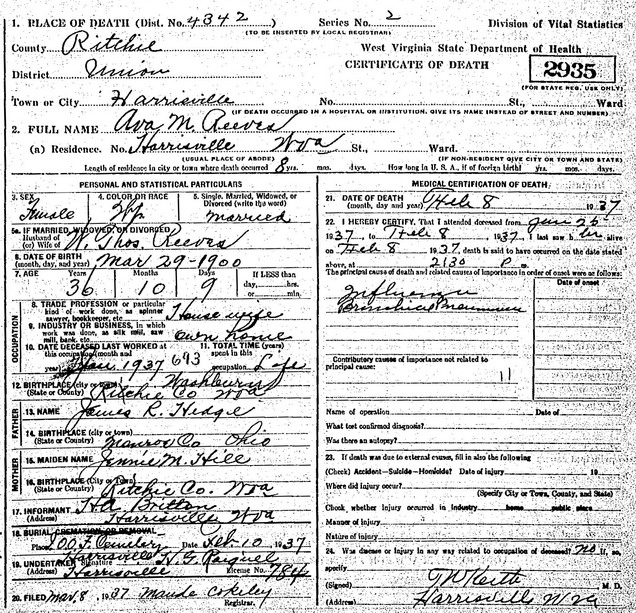 1. PLACE OF DEATH (Dist. No. 4342) Series No. 2 Division of Vital Statistics
(TO BE INSERTED BY LOCAL REGISTRAR)
County Ritchie West Virginia State Department of Health
CERTIFICATE OF DEATH 2935
District Union (FOR STATE REG. USE ONLY)
Town or City Harrisville No. St., Ward
(IF DEATH OCCURRED IN A HOSPITAL OR INSTITUTION, GIVE ITS NAME INSTEAD OF STREET AND NUMBER)
2. FULL NAME Ava M. Reeves
(a) Residence. No. Harrisville Wva St., Ward.
(USUAL PLACE OF ABODE) (IF NON-RESIDENT GIVE CITY OR TOWN AND STATE)
Length of residence in city or town where death occurred 8 yrs. mos. days. How long in U. S. A., if of foreign birth? yrs. mos. days.
PERSONAL AND STATISTICAL PARTICULARS
3. SEX 4. COLOR OR RACE 5. Single, Married, Widowed, or Divorced (write the word)
Female married
5a. IF MARRIED, WIDOWED, OR DIVORCED
Husband of (or) Wife of W. Thos. Reeves
6. DATE OF BIRTH (month, day, and year) Mar 29-1900
7. AGE Years Months Days If LESS than
36 10 9 day, hrs. or min.
OCCUPATION
8. TRADE PROFESSION or particular kind of work done, as spinner sawyer, bookkeeper, etc House wife
9. INDUSTRY OR BUSINESS, in which work was done, as silk mill, saw mill, bank, etc. own home
10. DATE DECEASED LAST WORKED at this occupation (month and year) Jan 1937 693
11. TOTAL TIME (years) spent in this occupation Life
12. BIRTHPLACE (city or town) Washburn
(State or County) Ritchie Co Wva
FATHER
13. NAME James R. Hedge
14. BIRTHPLACE (city or town)
(State or Country) Monroe Co Ohio
MOTHER
15. MAIDEN NAME Jennie M. Hill
16. BIRTHPLACE (city or town)
(State or Country) Ritchie Co. Wva
17. INFORMANT H.A. Britton
(Address) Harrisville Wva
18. BURIAL CREMATION OR REMOVAL
Place I.O.O.F. Cemetery Date Feb. 10 1937
Harrisville
19. UNDERTAKER Signature H. G.
(Address) Harrisville License No. 784
20. FILED Mar, 8, 1937 Maude Cokeley
Registrar.
MEDICAL CERTIFICATION OF DEATH
21. DATE OF DEATH (month, day, and year) Feb 8 1937
22. I HEREBY CERTIFY, That I attended deceased from Jan 25
1937 to Feb 8 1937. I last saw her alive
on Feb 8 1937. death is said to have occurred on the date stated
above, at 2130 P m.
The principal cause of death and related causes of importance in order of onset were as follows:
Date of onset
Influenza
Bronchical Pneumonia
Contributory causes of importance not related to principal cause:
11
Name of operation Date of
What test confirmed diagnosis?
Was there an autopsy?
23. If death was due to external causes, fill in also the following
(Check) Accident-Suicide-Homicide? Date of injury 19
Where did injury occur?
(Specify City or Town, County, and State)
Check, whether injury occurred in industry home public place
Manner of injury
Nature of injury
24. Was disease or injury in any way related to occupation of deceased? no If so,
specify
(Signed) T W Keith M. D.
(Address) Harrisville W Va